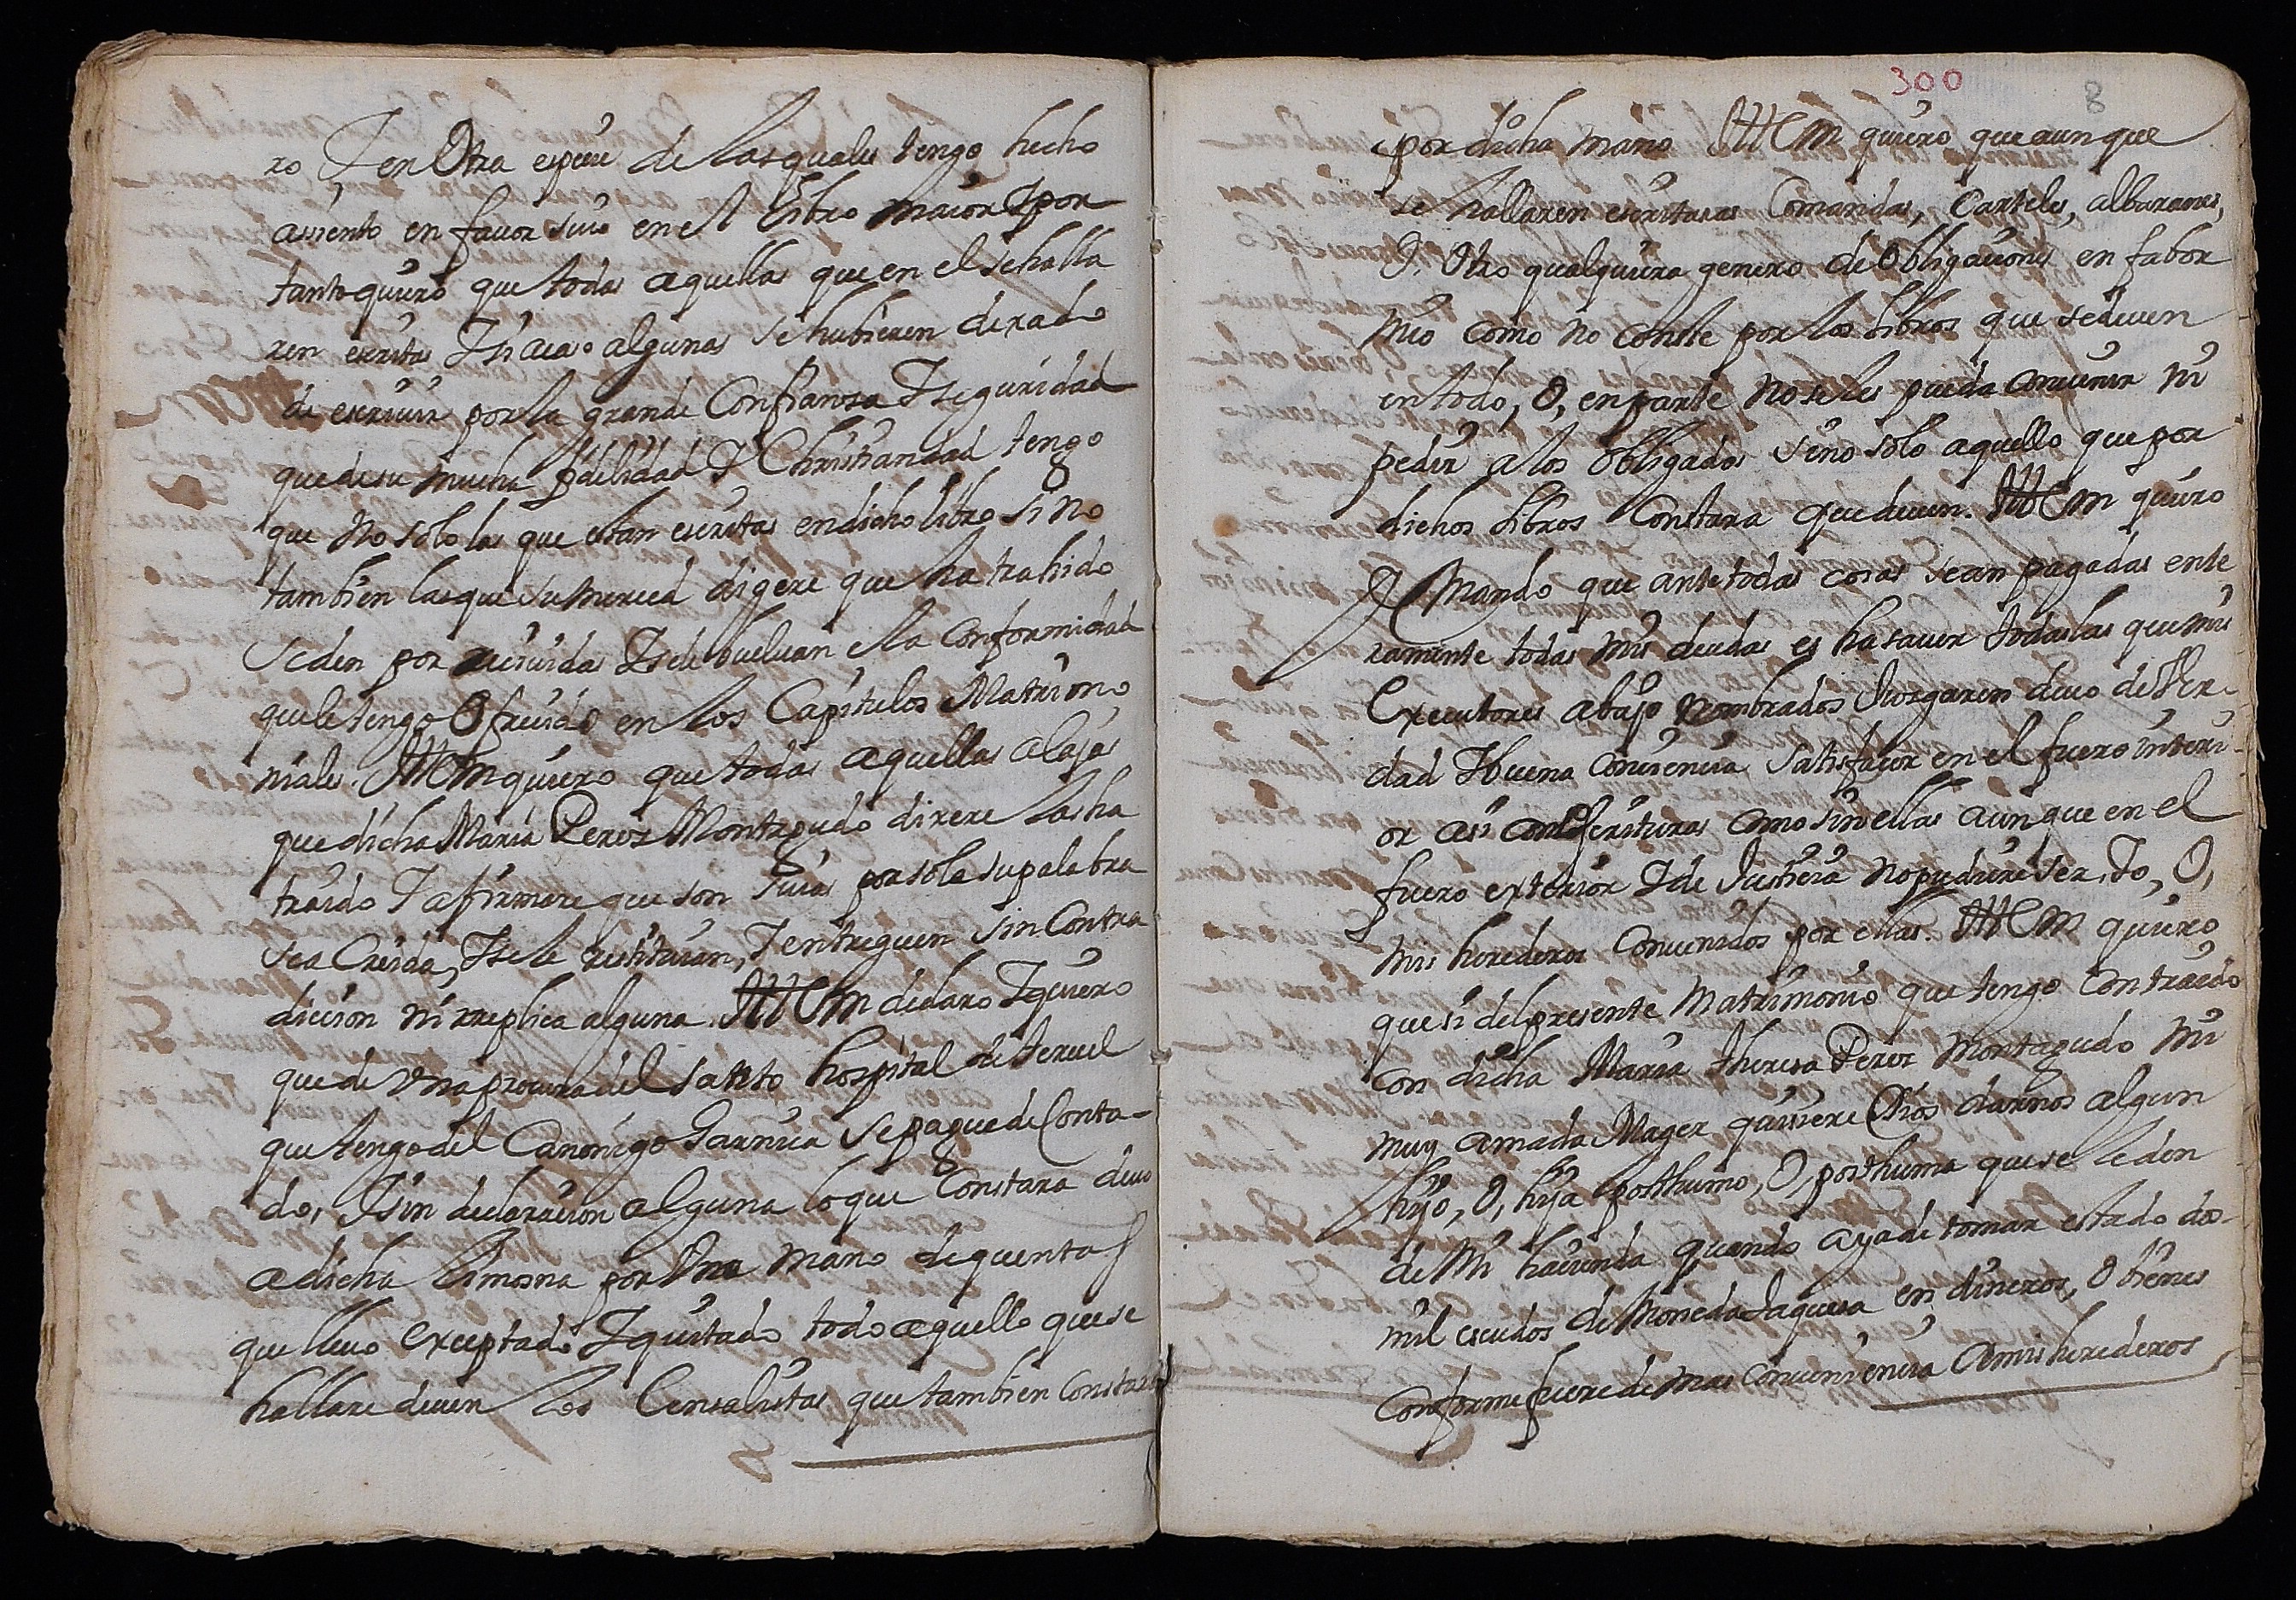 ro, Y en Otra especie de las quales tengo hecho
assiento en favor suio en el Libro maior Y por
tanto quiero que todas aquellas que en el se halla
ren escritas Y si acaso algunas se hubieren dexado
de escriuir por la grande Confianza Y seguridad
que de su mucha fidelidad Y Christiandad tengo
que no solo las que estan escritas en dicho libro sino
tambien las que su merced digere que ha trahido
se den por reciuidas Y se le bueluan en la Conformidad
que le tengo Ofrecido en los Capitulos Matrimo
niales. Ittem quiero que todas aquellas alajas
que dicha Maria Perez Montagudo dixere las ha
traido Y afirmare que son suias por sola su palabra
sea Creida, Y se le restituian, Y entreguen sin Contra
dicion ni rreplica alguna. Ittem declaro Y quiero
que de Vna procura del santo hospital de teruel
que tengo del Canonigo Garnica se pague de Conta-
do, Y sin declaracion alguna lo que Constara deuo
a dicha limosna por Vna mano de quentas
que lleuo exceptado Y quitado todo aquello que se
hallare deuen los Censalistas que tambien Constara
300
8
por dicha mano Ittem quiero que aunque
se hallaren escrituras Comandas, Carteles, albaranes,
O, Otro qualquiera genero de Obligaciones en fabor
mio como no conste por los libros que se deuen
en todo, O, en parte no se les pueda conuenir ni
pedir a los obligados sino solo aquello que por
dichos libros Constara que deuen. Ittem quiero
Y Mando que ante todas cosas sean pagadas ente
ramente todas mis deudas es ha sauer todas las que mis
Executores abajo nombrados Otorgaren deuo de Ver-
dad Y buena conciencia satisfacer en el fuero interi-
or assi con Escrituras como sin ellas aunque en el
fuero exterior Y de Justicia no pudiere ser, Yo, O,
mis herederos Conuenidos por ellas. Ittem quiero
que si del presente Matrimonio que tengo Contraido
con dicha Maria theresa Perez Montagudo mi
muy amada Muger quisiere Dios darnos algun
hijo, O, hija posthumo, O, posthuma que se le den
de Mi hacienda quando aya de tomar estado dos-
mil escudos de Moneda Jaquesa en dineros, O bienes
Conforme fuere de mas Conueniencia a mis herederos